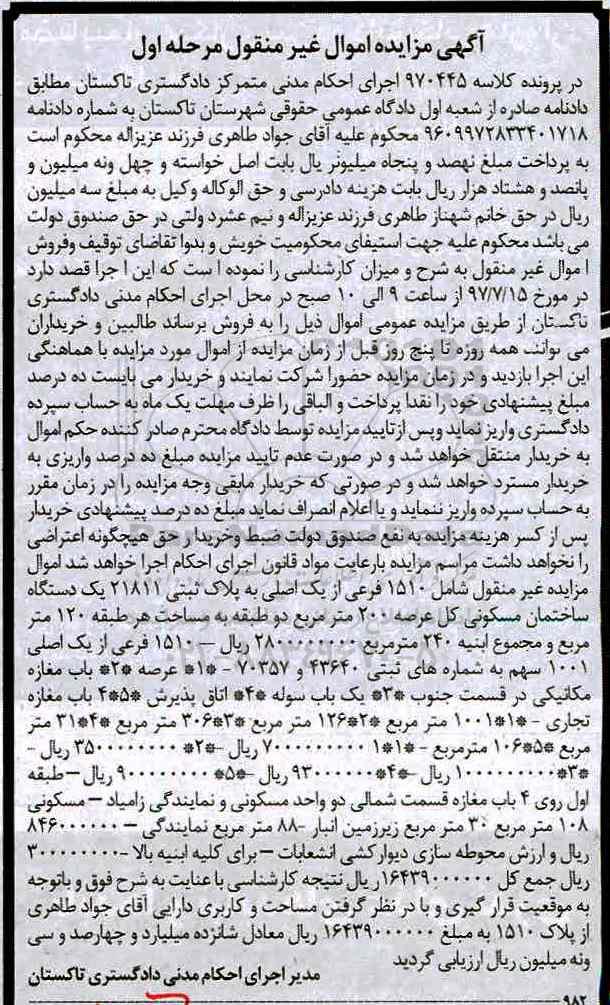 آگهی مزایده اموال غیر منقول مرحله اول
در پرونده کلاسه ۹۷۰۴۴۵ اجرای احکام مدنی متمرکز دادگستری تاکستان مطابق
دادنامه صادره از شعبه اول دادگاه عمومی حقوقی شهرستان تاکستان به شماره دادنامه
۹۶۰۹۹۷۲۸۳۳۴۰۱۷۱۸ محکوم علیه آقای جواد طاهری فرزند عزیزاله محکوم است
به پرداخت مبلغ نهصد و پنجاه میلیونر یال بابت اصل خواسته و چهل ونه میلیون و
پانصد و هشتاد هزار ریال بابت هزینه دادرسی و حق الوکاله وکیل به مبلغ سه میلیون
ریال در حق خانم شهناز طاهری فرزند عزیزاله و نیم عشرد ولتی در حق صندوق دولت
می باشد محکوم علیه جهت استیفای محکومیت خویش و بدوا تقاضای توقیف وفروش
ا موال غیر منقول به شرح و میزان کارشناسی را نموده ا ست که این ا جرا قصد دارد
در مورخ ۹۷/۷/۱۵ از ساعت ۹ الی ۱۰ صبح در محل اجرای احکام مدنی دادگستری
تاکستان از طریق مزایده عمومی اموال ذیل را به فروش برساند طالبین و خریداران
می توانند همه روزه تا پنج روز قبل از زمان مزایده از اموال مورد مزایده با هماهنگی
این اجرا بازدید و در زمان مزایده حضورا شرکت نمایند و خریدار می بایست ده درصد
مبلغ پیشنهادی خود را نقدا پرداخت و الباقی را ظرف مهلت یک ماه به حساب سپرده
دادگستری واریز نماید وپس ازتایید مزایده توسط دادگاه محترم صادر کننده حکم اموال
به خریدار منتقل خواهد شد و در صورت عدم تایید مزایده مبلغ ده درصد واریزی به
خریدار مسترد خواهد شد و در صورتی که خریدار مابقی وجه مزایده را در زمان مقرر
به حساب سپرده واریز ننماید و یا اعلام انصراف نماید مبلغ ده درصد پیشنهادی خریدار
پس از کسر هزینه مزایده به نفع صندوق دولت ضبط وخریدار حق هیچگونه اعتراضی
را نخواهد داشت مراسم مزایده بارعایت مواد قانون اجرای احکام اجرا خواهد شد اموال
مزایده غیر منقول شامل ۱۵۱۰ فرعی از یک اصلی به پلاک ثبتی ۲۱۸۱۱ یک دستگاه
ساختمان مسکونی کل عرصه ۲۰۱ متر مربع دو طبقه به مساحت هر طبقه ۱۲۰ متر
مربع و مجموع ابنیه ۲۴۰ مترمربع ۲۸۰۰۰۰۰۰۰۰ ریال – ۱۵۱۰ فرعی از یک اصلی
۱۰۰۱ سهم به شماره های ثبتی ۴۳۶۴۰ و ۷۰۳۵۷ - *۱* عرصه *۲* باب مغازه
مکانیکی در قسمت جنوب *۳* یک باب سوله *۴* اتاق پذیرش *۵*۴ باب مغازه
تجاری - *۱*۱۰۰۱ متر مربع *۲*۱۲۶ متر مربع *۳*۳۰۶ متر مربع *۴*۳۱ متر
مربع *۵*۱۰۶ مترمربع - *۱*۱ ۷۰۰۰۰۰۰۰۰۰ ریال –*۲* ۳۵۰۰۰۰۰۰۰۰ ریال -
*۳*۱۰۰۰۰۰۰۰۰۰ ریال –*۴* ۹۳۰۰۰۰۰۰ ریال –*۵* ۹۰۰۰۰۰۰۰۰ ریال –طبقه
اول روی ۴ باب مغازه قسمت شمالی دو واحد مسکونی و نمایندگی زامیاد – مسکونی
۱۰۸ متر مربع ۳۰ متر مربع زیرزمین انبار –۸۸ متر مربع نمایندگی – ۸۴۶۰۰۰۰۰۰
ریال و ارزش محوطه سازی دیوار کشی انشعابات – برای کلیه ابنیه بالا -۳۰۰۰۰۰۰۰۰
ریال جمع کل ۱۶۴۳۹۰۰۰۰۰۰ر یال نتیجه کارشناسی با عنایت به شرح فوق و باتوجه
به موقعیت قرار گیری و با در نظر گرفتن مساحت و کاربری دارایی آقای جواد طاهری
از پلاک ۱۵۱۰ به مبلغ ۱۶۴۳۹۰۰۰۰۰۰ ریال معادل شانزده میلیارد و چهارصد و سی
ونه میلیون ریال ارزیابی گردید
مدیر اجرای احکام مدنی دادگستری تاکستان
۹۸۲